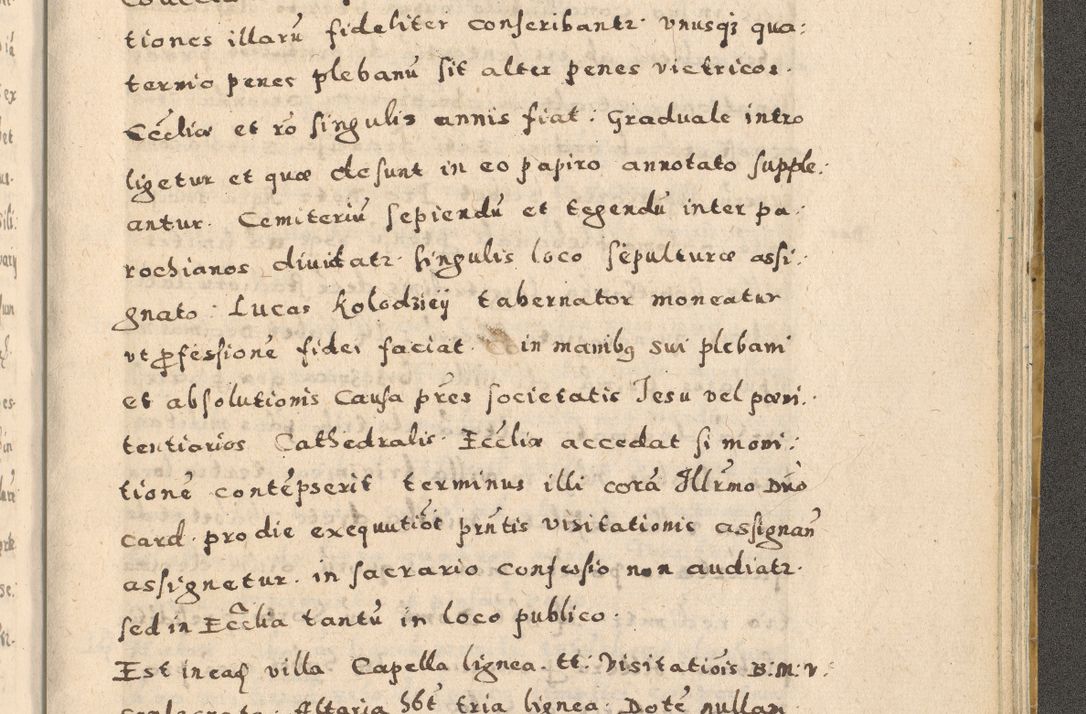 tiones illarū fideliter conscribantr. vnusqȝ qua:
ternio penes plebanū sit alter penes victricos.
Ecc̄liæ et rō singulis annis fiat: Graduale intro
ligetur et quæ desunt in eo papiro annotato supple:
antur. Cemiteriū sepiendū et tegendū inter pa:
rochianos dividatr. singulis loco sepulturæ assi:
gnato: Lucas Kolodzieÿ tabernator moneatur
vt ꝓfessionē fidei faciat in manibꝯ sui plebani
et absolutionis causa pr̄es societatis Jesu vel pœni:
tentiarios Cathedralis Ecc̄liæ accedat si moni:
tionē contēpserit terminus illi corā Illr̄mo Dn̄o
Card. pro die exequutiōī pn̄tis visitationis assignan̄
assignetur. in sacrario confessio non audiatr.
sed in Ecc̄lia tantū in loco publico.
Est in eadꝫ villa Capella lignea tt: Visitatiōis B.M.V.
Altaria hb̄t tria lignea. Dotē nullam